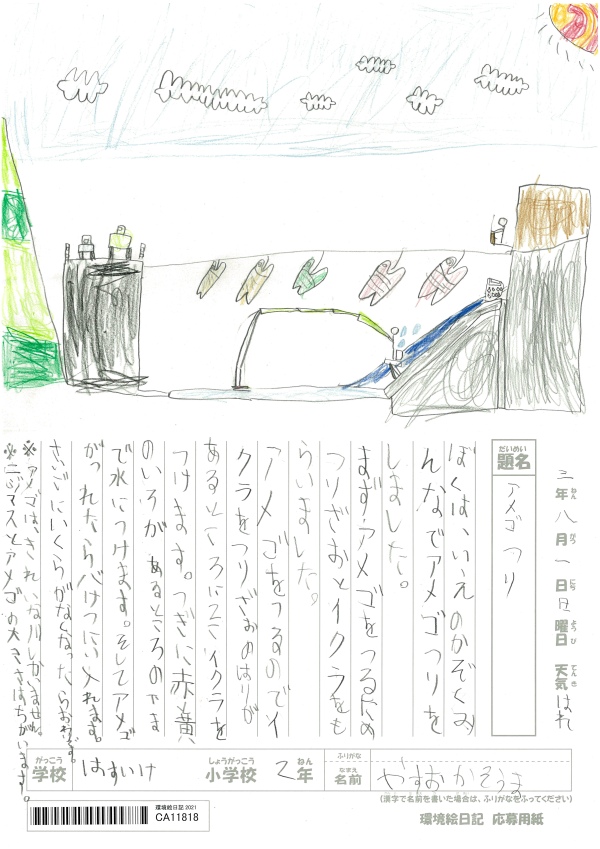 三年八月一日日曜日 天気はれ
ねん がつ にち ようび てんき
だいめい
題名 アメゴつり
ぼくは、いえのかぞくみ
んなでアメゴつりを
しました。
まず、アメゴをつるため
つりざおとイクラをも
らいました。
アメゴをつるのでイ
クラをつりざおのはりが
あるところに2こイクラを
つけます。つぎに赤黄
のいろがあるところのてま
で水につけます。そしてアメゴ
がつれたらバケツに入れます。
さいごにいくらがなくなったら
※アメゴは、きれいな川しかいません。
※ニジマスとアメゴの大きさはちがいます。
がっこう しょうがっこう ねん ふりがな
学校 はすいけ 小学校 2年 なまえ 名前 やすおかそうま
(漢字で名前を書いた場合は、ふりがなをふってください)
環境絵日記 2021
CA11818
環境絵日記 応募用紙